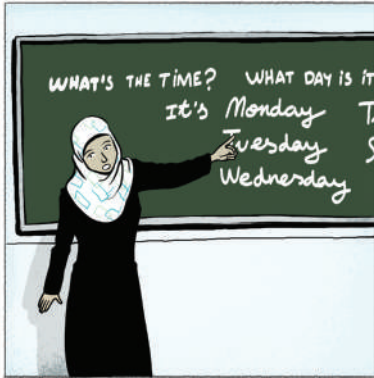 WHAT'S THE TIME? WHAT DAY IS IT
It's Monday T
Tuesday S
Wednesday